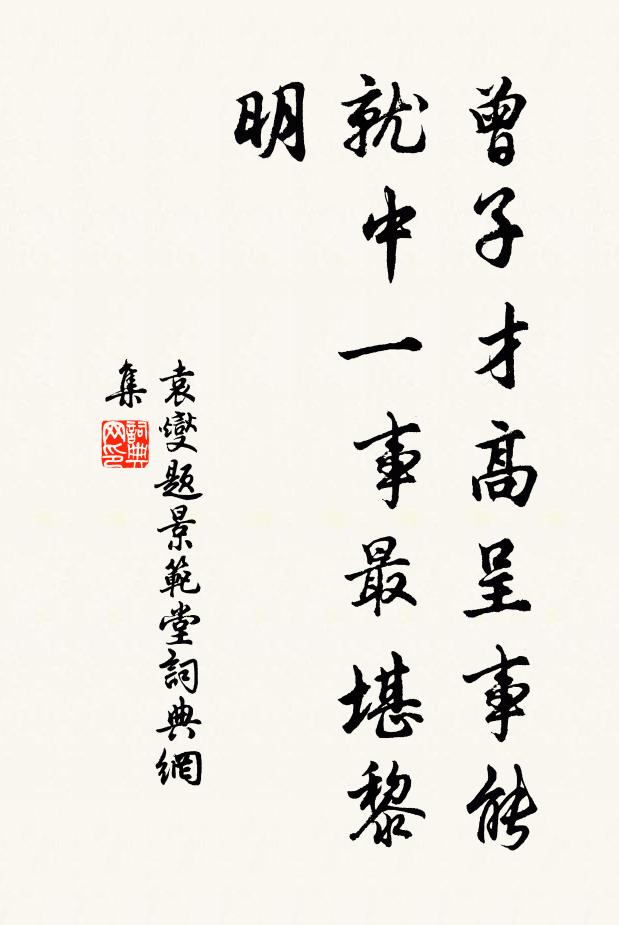 曾子才高呈事能
就中一事最堪黎
明
袁燮題景範堂詞典網
集
詞典网印